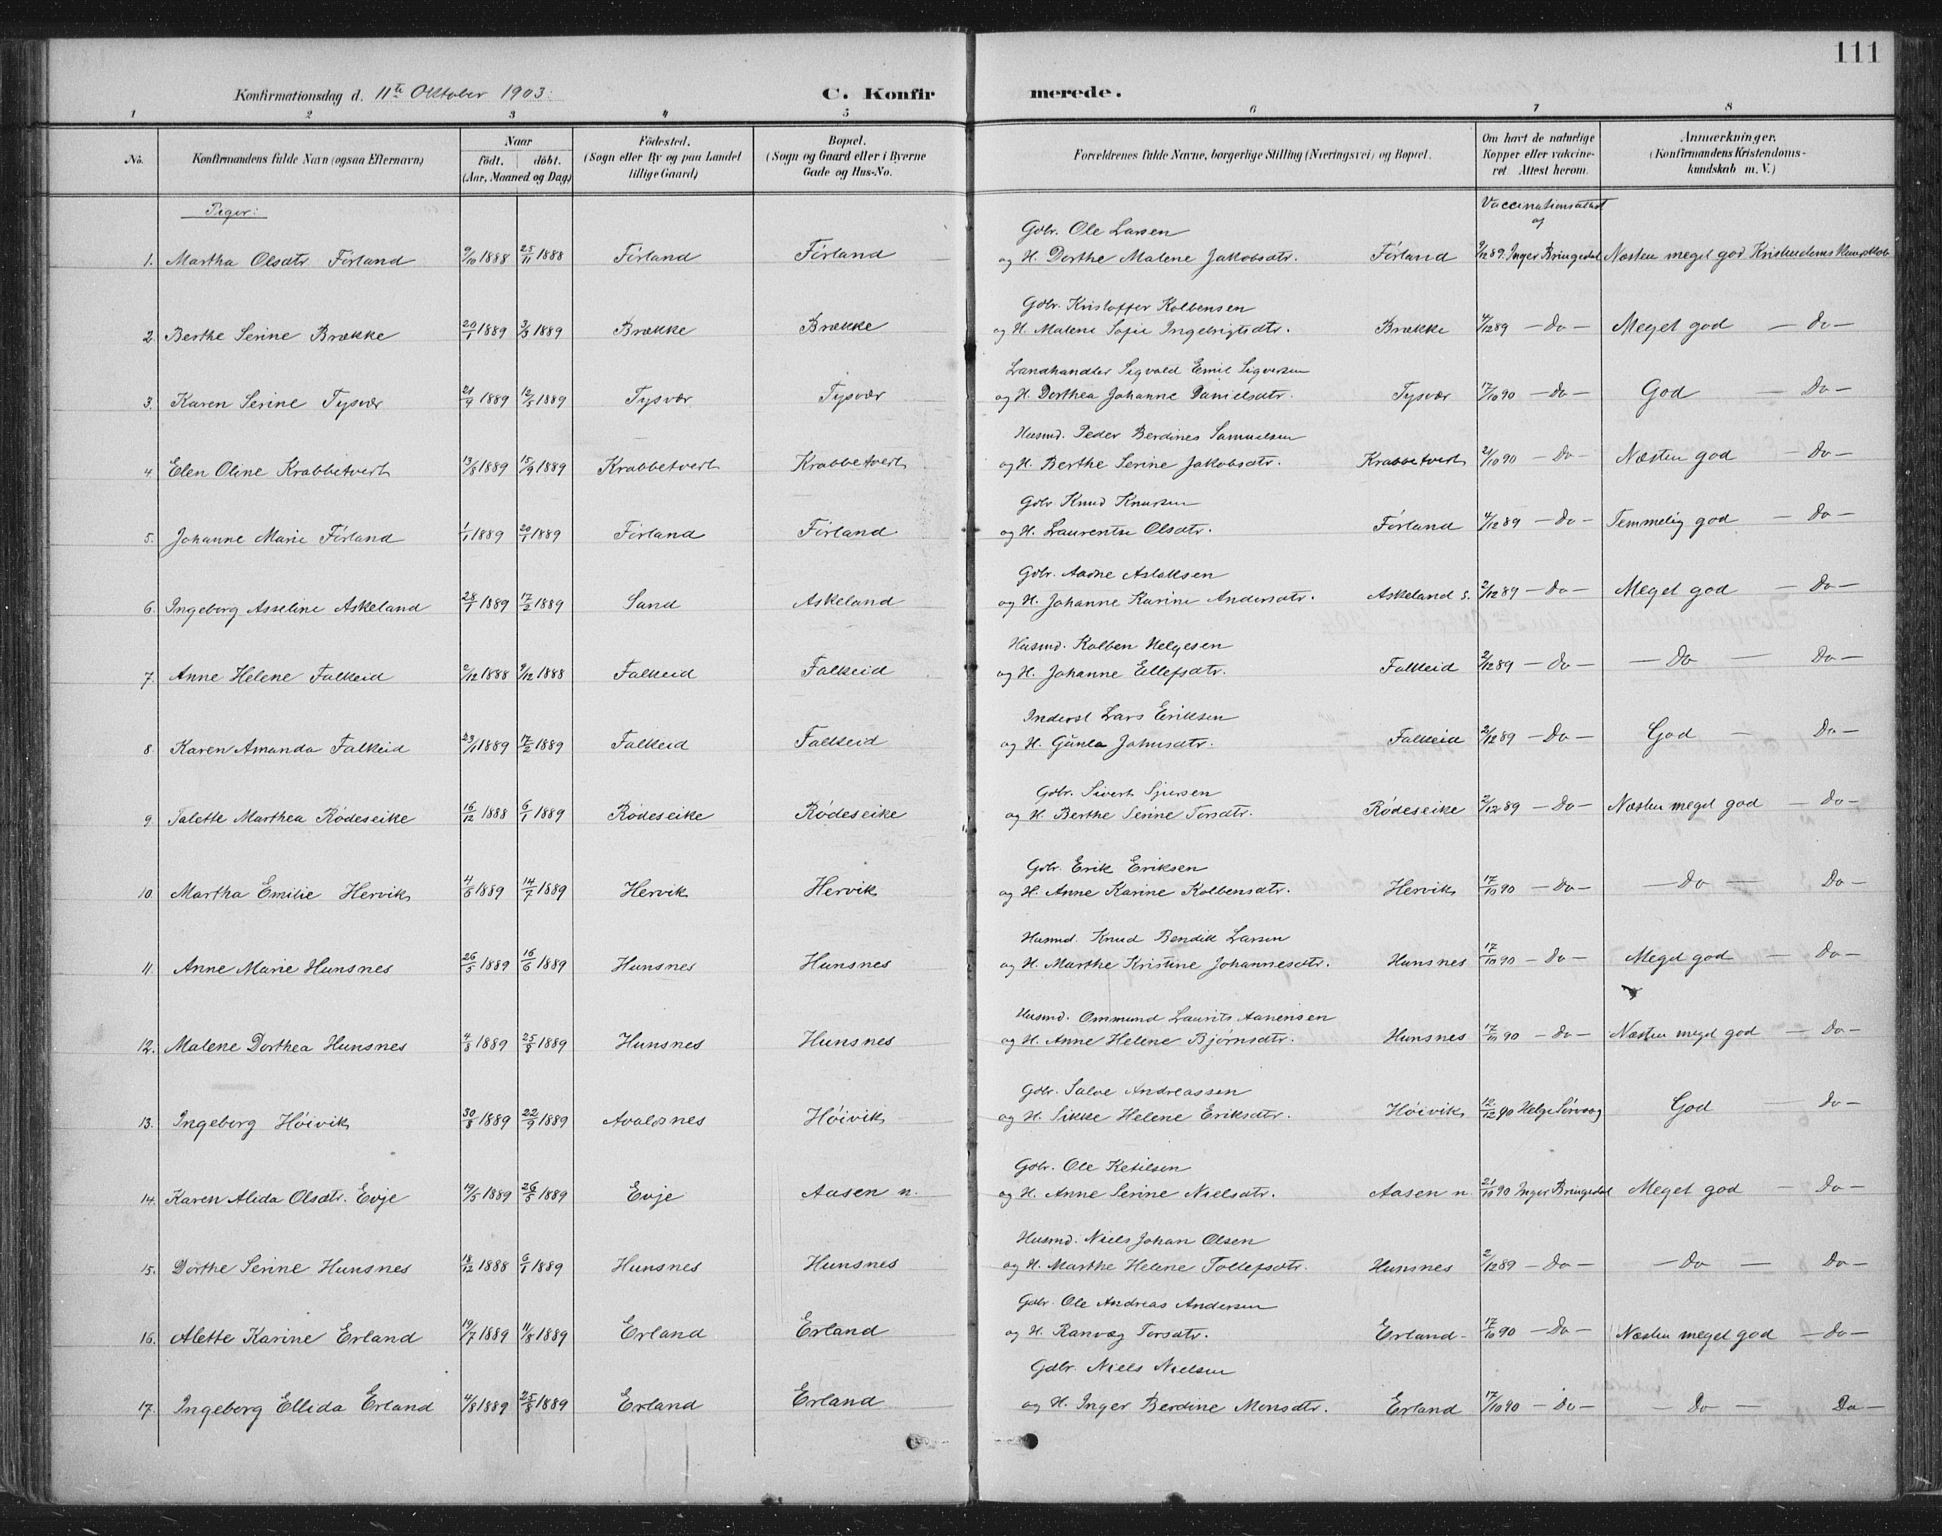 111
Konfirmationsdag d. 11te Oktober 1903. C. Konfirmerede.
1 2 3 4 5 6 7 8
No. Konfirmandens fulde Navn (ogsaa Efternavn) Naar født. døbt. (Aar, Maaned og Dag) Fødested. (Sogn eller By og paa Landet tillige Gaard) Bopæl. (Sogn og Gaard eller i Byerne Gade og Hus-No. Forældrenes fulde Navne, borgerlige Stilling (Næringsvei) og Bopæl. Om havt de naturlige Kopper eller vakcineret. Attest herom. Anmærkninger. (Konfirmandens Kristendomskundskab m. V.)
Piger: Vaccinationsattest af
Gdbr. Ole Larsen
1. Martha Olsdtr. Førland 9/10 1888 25/11 1888 Førland Førland og H. Dorthe Malene Jakobsdtr. Førland 9/12 89. Inger Bringedal Næsten meget god Kristendomskundskab
Gdbr. Kristoffer Kolbensen
2. Berthe Serine Brække 20/1 1889 3/3 1889 Brække Brække og H. Malene Sofie Ingebrigtsdtr. Brække 4/12 89 – Do – Meget god – do –
Landhandler Sigvald Emil Sigversen
3. Karen Serine Tysvær 21/4 1889 12/5 1889 Tysvær Tysvær og H. Dorthea Johanne Danielsdtr. Tysvær 17/10 90 – do – God – Do –
Husmd. Peder Berdines Samuelsen
4. Elen Oline Krabbetveit 13/8 1889 15/9 1889 Krabbetveit Krabbetveit og H. Berthe Serine Jakobsdtr. Krabbetveit 21/10 90 – Do – Næsten god – Do –
Gdbr. Knud Knutsen
5. Johanne Marie Førland 1/1 1889 20/1 1889 Førland Førland og H. Laurentse Olsdtr. Førland 4/12 89 – Do – Temmelig god – Do –
Gdbr. Aadne Aslaksen
6. Ingeborg Asseline Askeland 28/1 1889 17/2 1889 Sand Askeland og H. Johanne Karine Andersdtr. Askeland s. 2/12 89 – Do – Meget god – Do –
Husmd. Kolben Helgesen
7. Anne Helene Falkeid 2/12 1888 9/12 1888 Falkeid Falkeid og H. Johanne Ellefsdtr. Falkeid 2/12 89 – do – – Do – Do –
Inderst Lars Eriksen
8. Karen Amanda Falkeid 23/1 1889 17/2 1889 Falkeid Falkeid og H. Gunla Johnsdtr. Falkeid 2/12 89 – Do – God – Do –
Gdbr. Sivert Sjursen
9. Talette Marthea Rødeseike 16/12 1888 6/1 1889 Rødeseike Rødeseike og H. Berthe Serine Torsdtr. Rødeseike 2/12 89 – Do – Næsten meget god – do –
Gdbr. Erik Eriksen
10. Martha Emilie Hervik 4/6 1889 14/7 1889 Hervik Hervik og H. Anne Karine Kolbensdtr. Hervik 17/10 90 – Do – – Do – Do –
Husmd. Knud Bendik Larsen
11. Anne Marie Hunsnes 26/5 1889 16/6 1889 Hunsnes Hunsnes og H. Marthe Kristine Johannesdtr. Hunsnes 17/10 90 – Do – Meget god – Do –
Husmd. Ommund Laurits Aanensen
12. Malene Dorthea Hunsnes 4/8 1889 25/8 1889 Hunsnes Hunsnes og H. Anne Helene Bjørnsdtr. Hunsnes 17/10 90 – Do – Næsten meget god – Do –
Gdbr. Salve Andreassen
13. Ingeborg Høivik 30/8 1889 22/9 1889 Avaldsnes Høivik og H. Sikke Helene Eriksdtr. Høivik 12/12 90 Helge Sørvaag God – do –
Gdbr. Ole Ketilsen
14. Karen Alida Olsdtr. Evje 19/5 1889 26/5 1889 Evje Aasen n. og H. Anne Serine Nielsdtr. Aasen n. 21/10 90 Inger Bringedal Meget god – Do –
Husmd. Niels Johan Olsen
15. Dorthe Serine Hunsnes 18/12 1888 6/1 1889 Hunsnes Hunsnes og H. Marthe Helene Tollefsdtr. Hunsnes 2/12 89 – Do – – Do – Do –
Gdbr. Ole Andreas Andersen
16. Alette Karine Erland 19/7 1889 11/8 1889 Erland Erland og H. Ranvæg Torsdtr. Erland 17/10 90 – Do – Næsten meget god – do –
Gdbr. Niels Nielsen
17. Ingeborg Ellida Erland 4/8 1889 25/8 1889 Erland Erland og H. Inger Berdine Monsdtr. Erland 17/10 90 – Do – – Do – Do –